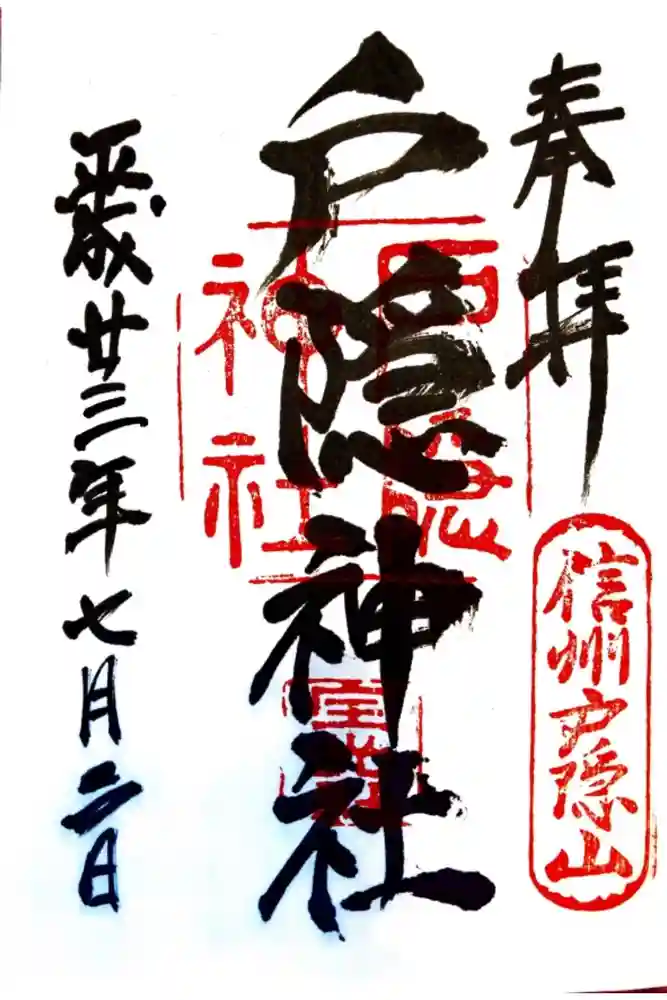 奉拝
信州戸隠山
戸隠神社
戸隠
神社
平成廿三年七月二日